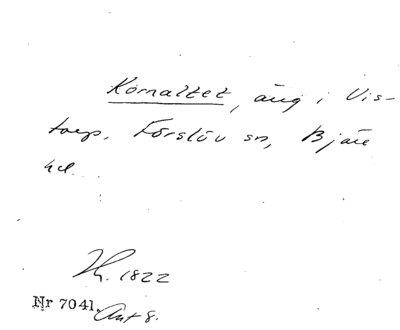 Kornaltet, äng i Vis-
torp, Förslöv sn, Bjäre
hd.
1822
Nr 7041. Akt 8.